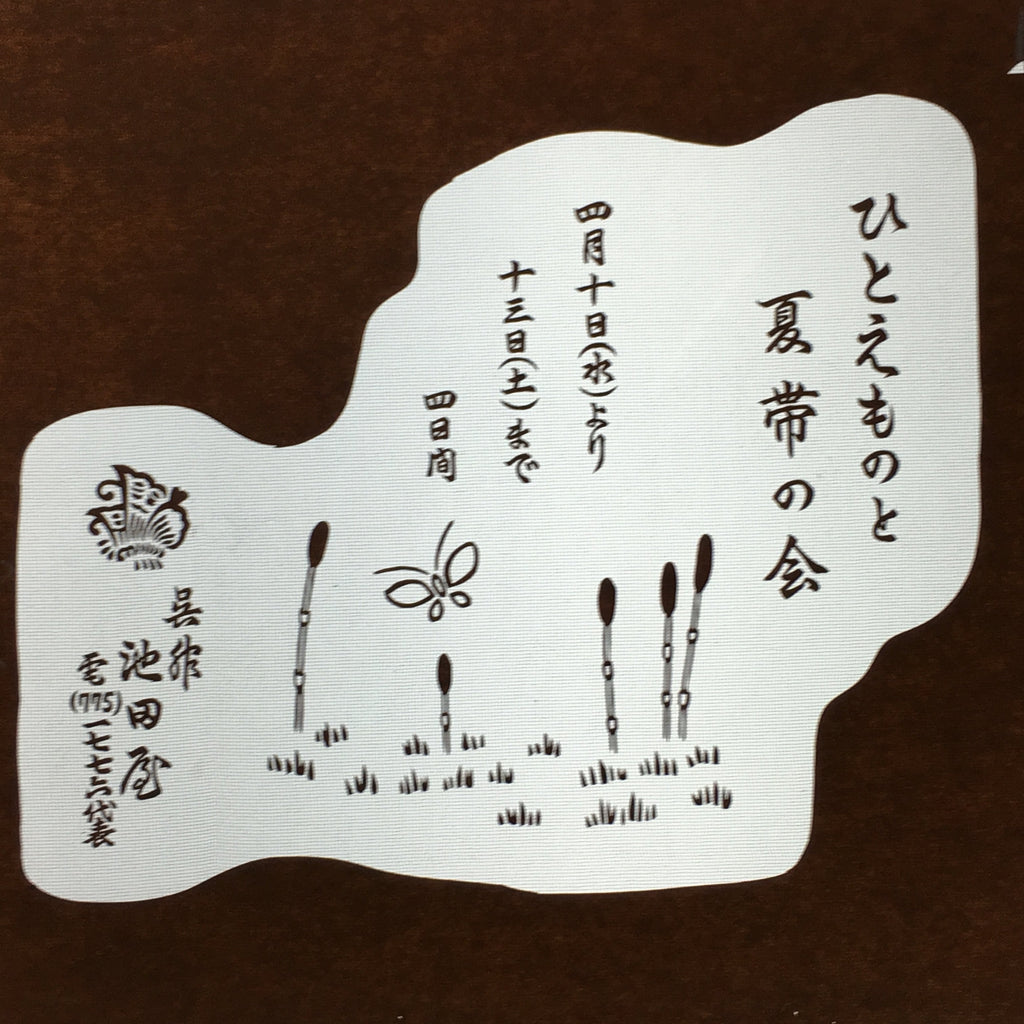 ひとえものと
夏帯の会
四月十日(水)より
十三日(土)まで
四日間
呉服
池田屋
電(775)一七七六代表